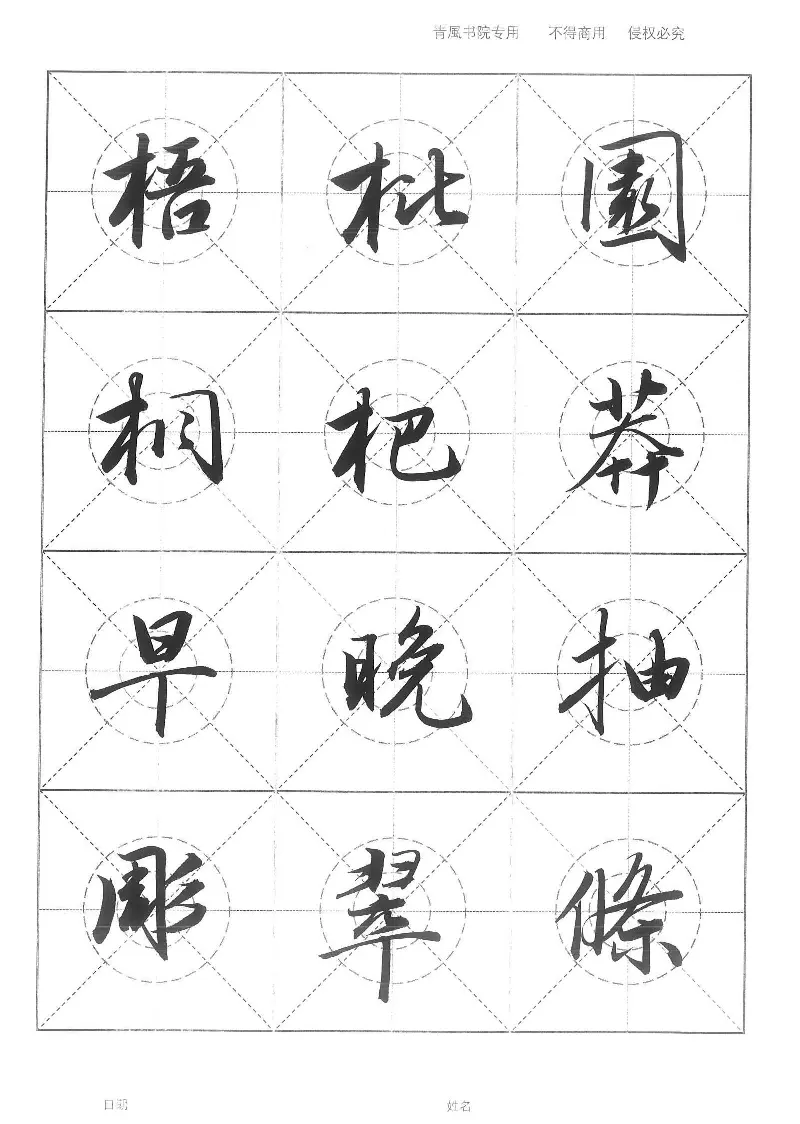 青風书院专用 不得商用 侵权必究
園莽抽條
枇杷晚翠
梧桐早彫
日期
姓名